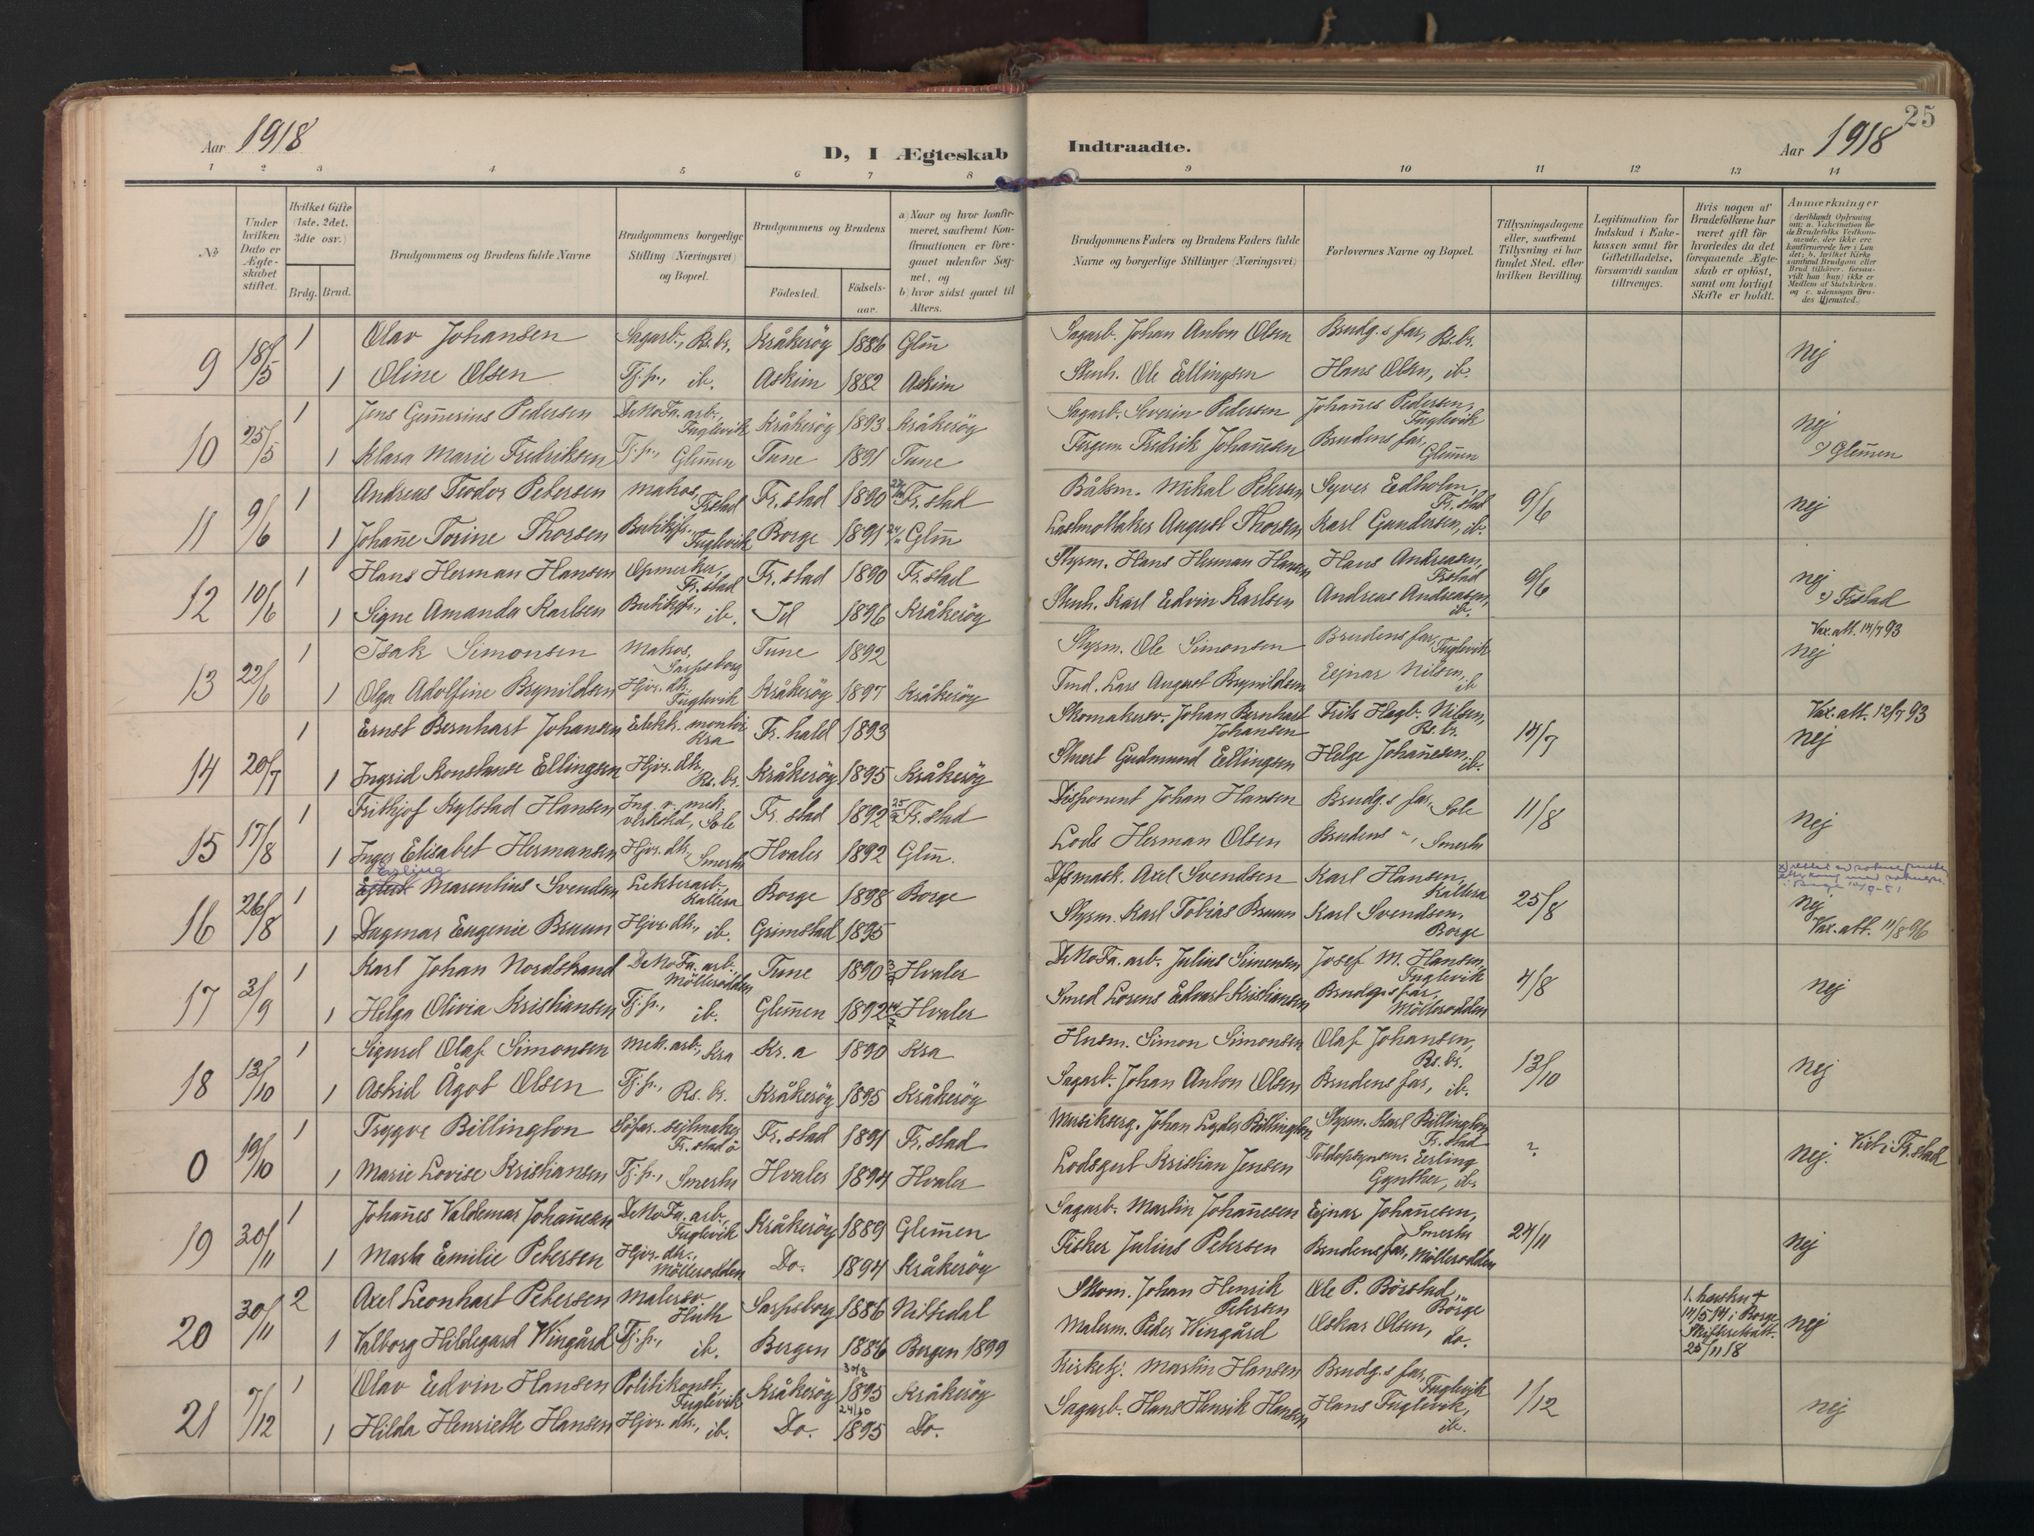 25
Aar 1918
D, I Ægteskab Indtraadte.
Aar 1918
1 2 3 4 5 6 7 8 9 10 11 12 13 14
№
Under hvilken Dato er Ægteskabet stiftet.
Hvilket Gifte (1ste, 2det, 3die osv.)
Brdg. Brud.
Brudgommens og Brudens fulde Navne
Brudgommens borgerlige Stilling (Næringsvei) og Bopæl.
Brudgommens og Brudens
Fødested.
Fødselsaar.
a) Naar og hvor konfirmeret, saafremt Konfirmationen er foregaaet udenfor Sognet, og
b) hvor sidst gaaet til Alters.
Brudgommens Faders og Brudens Faders fulde Navne og borgerlige Stillinger (Næringsvei)
Forlovernes Navne og Bopæl.
Tillysningsdagene eller, saafremt Tillysning ei har fundet Sted, efter hvilken Bevilling.
Legitimation for Indskud i Enkekassen samt for Giftetilladelse, forsaavidt saadan tiltrænges.
Hvis nogen af Brudefolkene har været gift før hvorledes da det foregaaende Ægteskab er opløst, samt om lovligt Skifte er holdt.
Anmærkninger
9 18/5 1 Olav Johansen Sagarb., Rs.br. Kråkeröy 1886 Glm̄ Sagarb. Johan Anton Olsen Brudg.s far, Rs.br. Nej
1 Oline Olsen Tj.p., ib. Askim 1882 Askim Stenh. Ole Ellingsen Hans Olsen, ib.
10 25/5 Jens Gem̄erius Pedersen DeNoFa. arb., Fuglevik Kråkeröy 1893 Kråkeröy Sagarb. Severin Pedersen Johan̄es Pedersen, Fuglevik nej
1 Klara Marie Fredriksen Tj.p., Glem̄en Tune 1891 Tune Fredrik Johan̄esen Brudens far, Glem̄en Glem̄en
11 9/6 1 Andreas Teodor Petersen Matros, Frstad Fr.stad 1890 Fr.stad Båtsm. Mikal Petersen Syver Edholm, Fr.stad 9/6 nej
1 Johan̄e Torine Thorsen Butikkfr., Fuglevik Borge 1891 Glm̄ August Thorsen Karl Gundersen, ib.
12 10/6 1 Hans Herman Hansen Opmerker, Fr.stad Fr.stad 1890 Fr.stad Styrm. Hans Herman Hansen Hans Andreasen, Frstad 9/6 nej
1 Signe Amanda Karlsen Butikkfr., ib. Id 1896 Kråkeröy Stenh. Karl Edvin Karlsen Andreas Andreasen, ib. Frstad
13 22/6 1 Isak Simonsen Matros, Sarpsborg Tune 1892 Styrm. Ole Simonsen Brudens far, Fuglevik Vax.att. 14/7 93 nej
1 Olga Adolfine Brynildsen Hjv. dtr. Fuglevik Kråkeröy 1897 Kråkeröy Tind. Lars August Brynildsen Ejnar Nilsen, ib
14 20/7 1 Ernst Bernhart Johansen Elektr. montör Kra Fr.hald 1893 Skomakersv. Johan Bernhart Johansen Frits Hagb. Nilsen, Rs.br. 14/7 Vax.att. 12/7 93 nej
1 Ingrid Konstanse Ellingsen Hjv. dtr. Rs.br. Kråkeröy 1895 Kråkeröy Gudmund Ellingsen Helge Johan̄esen, ib.
15 17/8 1 Frithjof Kylstad Hansen Ing. v. mek. verksted, Sole Fr.stad 1892 Fr.stad Disponent Johan Hansen Brudg.s far, Sole 11/8 nej
1 Inger Elisabet Hermansen Hjv. dtr., Smertu Hvaler 1892 Glm̄. Lods Herman Olsen Brudens ", Smertu
16 26/8 Erling Marentius Svendsen Lekterarb., Kallera Borge 1898 Borge Dpmask. Axel Svendsen Karl Hansen, Kallera 25/8 nej
1 Dagmar Eugenie Bruun Hjv. dtr., ib. Grimstad 1895 Styrm. Karl Tobias Bruun Karl Svendsen, Borge Vax.att. 11/8 96
17 3/9 1 Karl Johan Nordstrand DeNoFa. arb., Möllerodden Tune 1890 Hvaler DeNoFa. arb. Julius Simensen Josef M. Hansen, Fuglevik 4/8 nej
1 Helga Olivia Kristiansen Tj.p., ib. Glem̄en 1892 Hvaler Smed Lorens Edvart Kristiansen Brudg.s far, Möllerodden
18 13/10 1 Sigurd Olaf Simonsen Mek. arb., Kra Kr.a 1890 Kra Husm. Simon Simonsen Olaf Johansen, Rs.br. 13/10 nej
1 Astrid Ågot Olsen Tj.p., Rs.br. Kråkeröy 1895 Kråkeröy Sagarb. Johan Anton Olsen Brudens far, ib.
0 19/10 1 Trygve Billington Söfar. seilmaker Fr.stad Fr.stad 1891 Fr.stad Musikerg. Johan Lyder Billington Styrm. Karl Billington Fr.stad ? nej. Viet i Fr.stad
1 Marie Lovise Kristiansen Tj.p., Smertu Hvaler 1894 Hvaler Lodsgut Kristian Jensen Toldopsynsm. Eerling Gynther, ib.
19 30/11 1 Johan̄es Valdemar Johan̄esen DeNoFa. arb., Fuglevik Kråkeröy 1889 Glem̄en Sagarb. Martin Johan̄esen Ejnar Johan̄esen, Smertu 24/11 nej
1 Marta Emilie Petersen Hjv. dtr. Möllerodden Do. 1894 Kråkeröy Fisker Julius Petersen Brudens far, Möllerodden
20 30/11 2 Axel Leonhart Petersen Malersv. Huth Sarpsborg 1886 Nittedal Skom. Johan Henrik Petersen Ole P. Börstad, Börge 1. hustru † 14/5 14 i Borge Skifteratt. 25/11 18 nej
1 Valborg Hildegard Wingård Tj.p., ib. Bergen 1886 Bergen 1899 Malerm. Peder Wingård Oskar Olsen, do.
21 7/12 1 Olav Edvin Hansen Politikonst., Fuglevik Kråkeröy 30/8 1895 Kråkeröy Kirketj. Martin Hansen Brudg.s far, Fuglevik 1/12 nej
1 Hilda Henriette Hansen Hjv. dtr., ib. Do. 24/10 1895 Do. Sagarb. Hans Henrik Hansen Hans Fuglevik, ib.